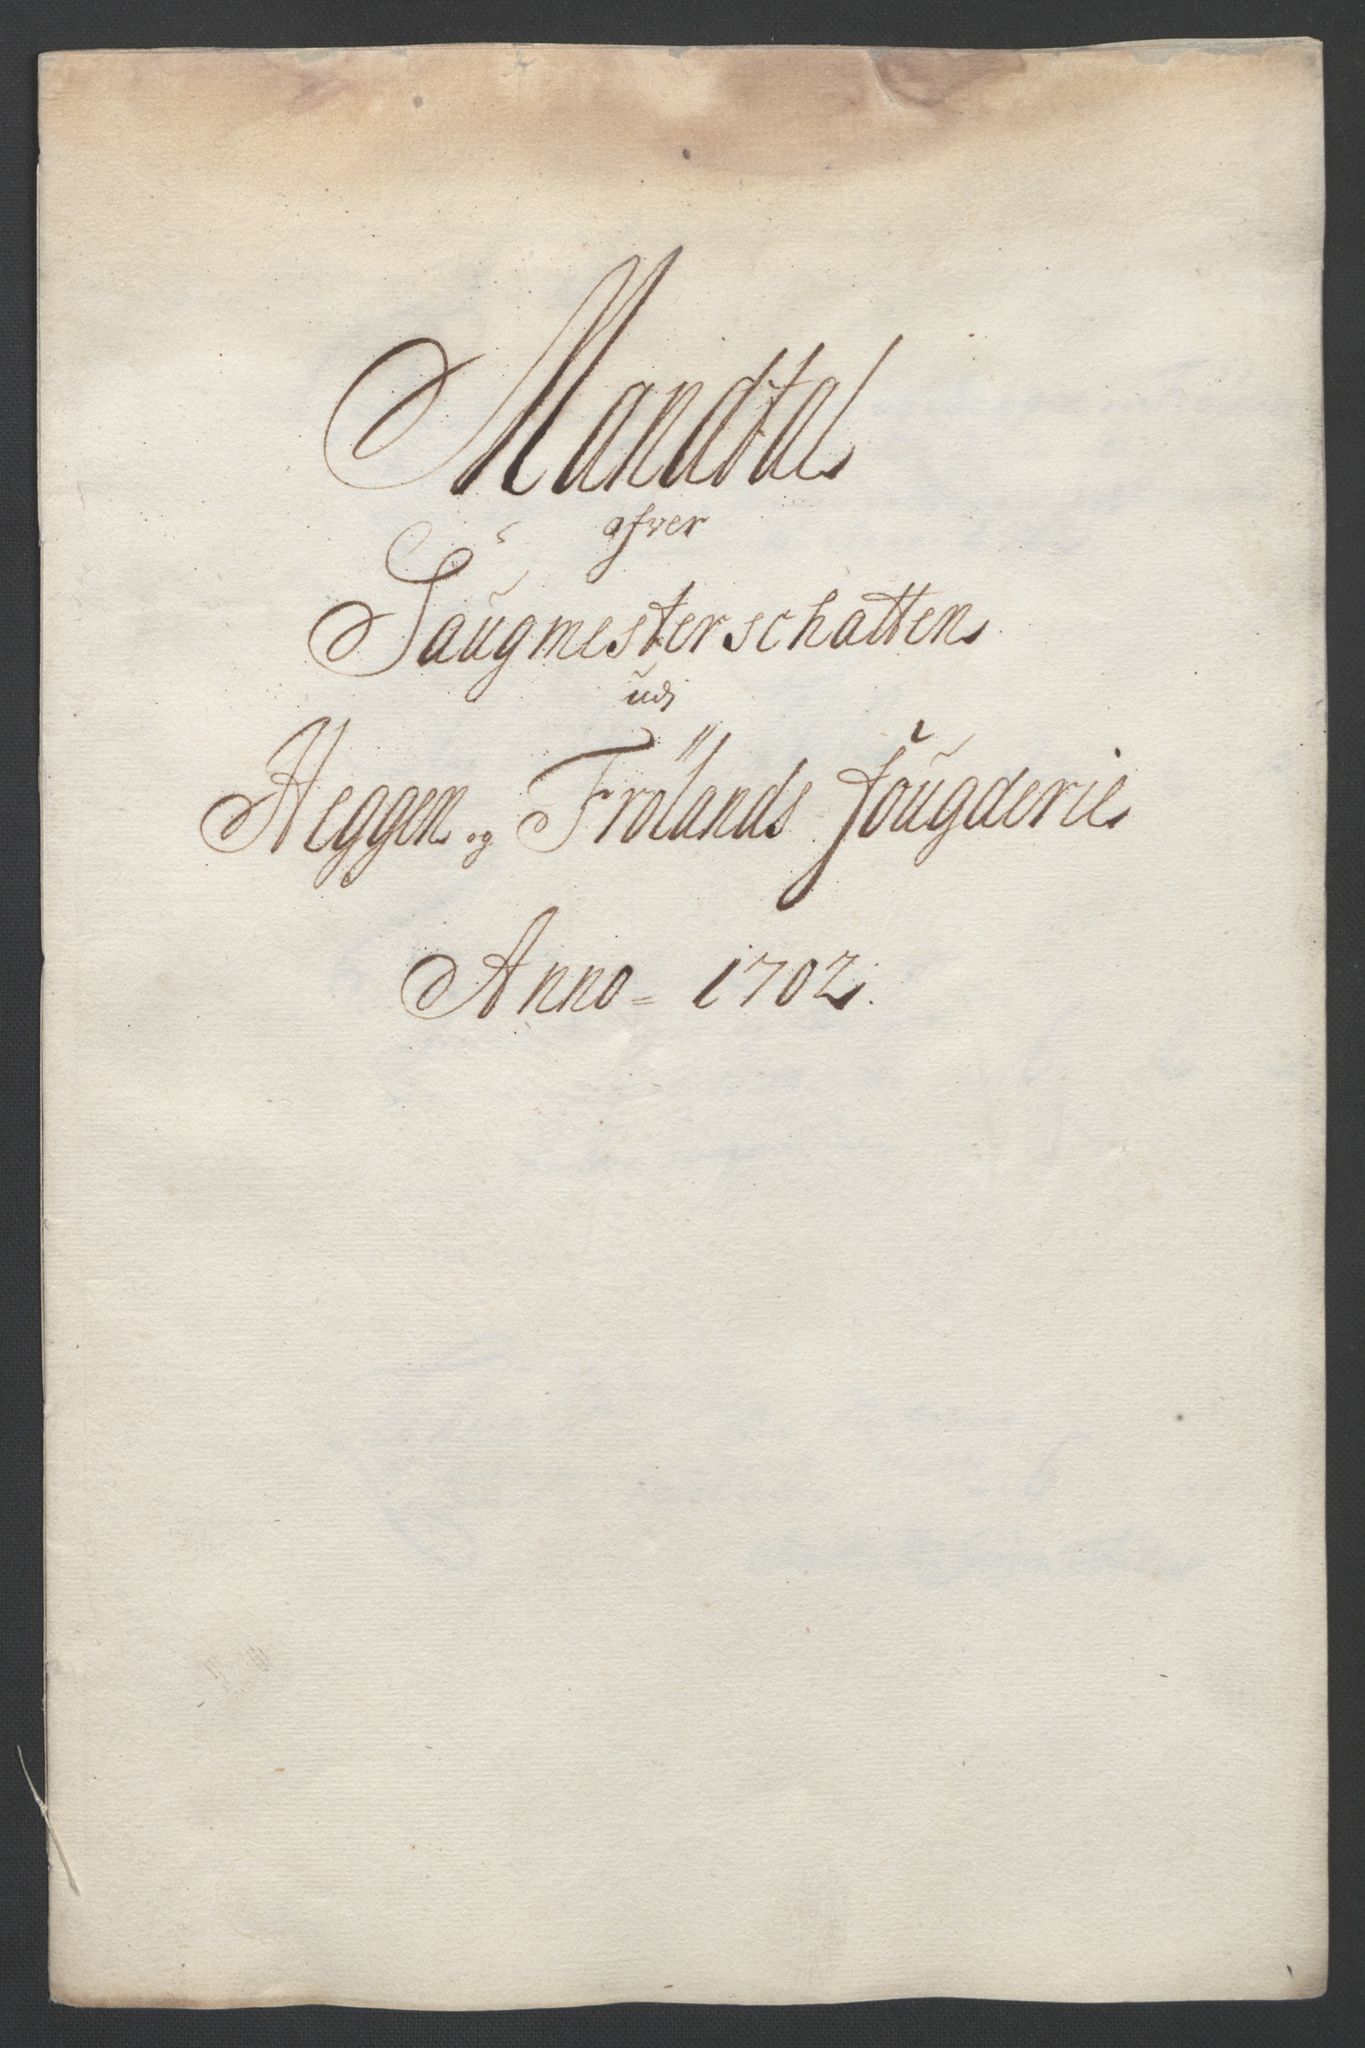 Mandtal
ofver
Saugmesterschatten
udi
Heggen og Frölands fougderie
Anno = 1702.